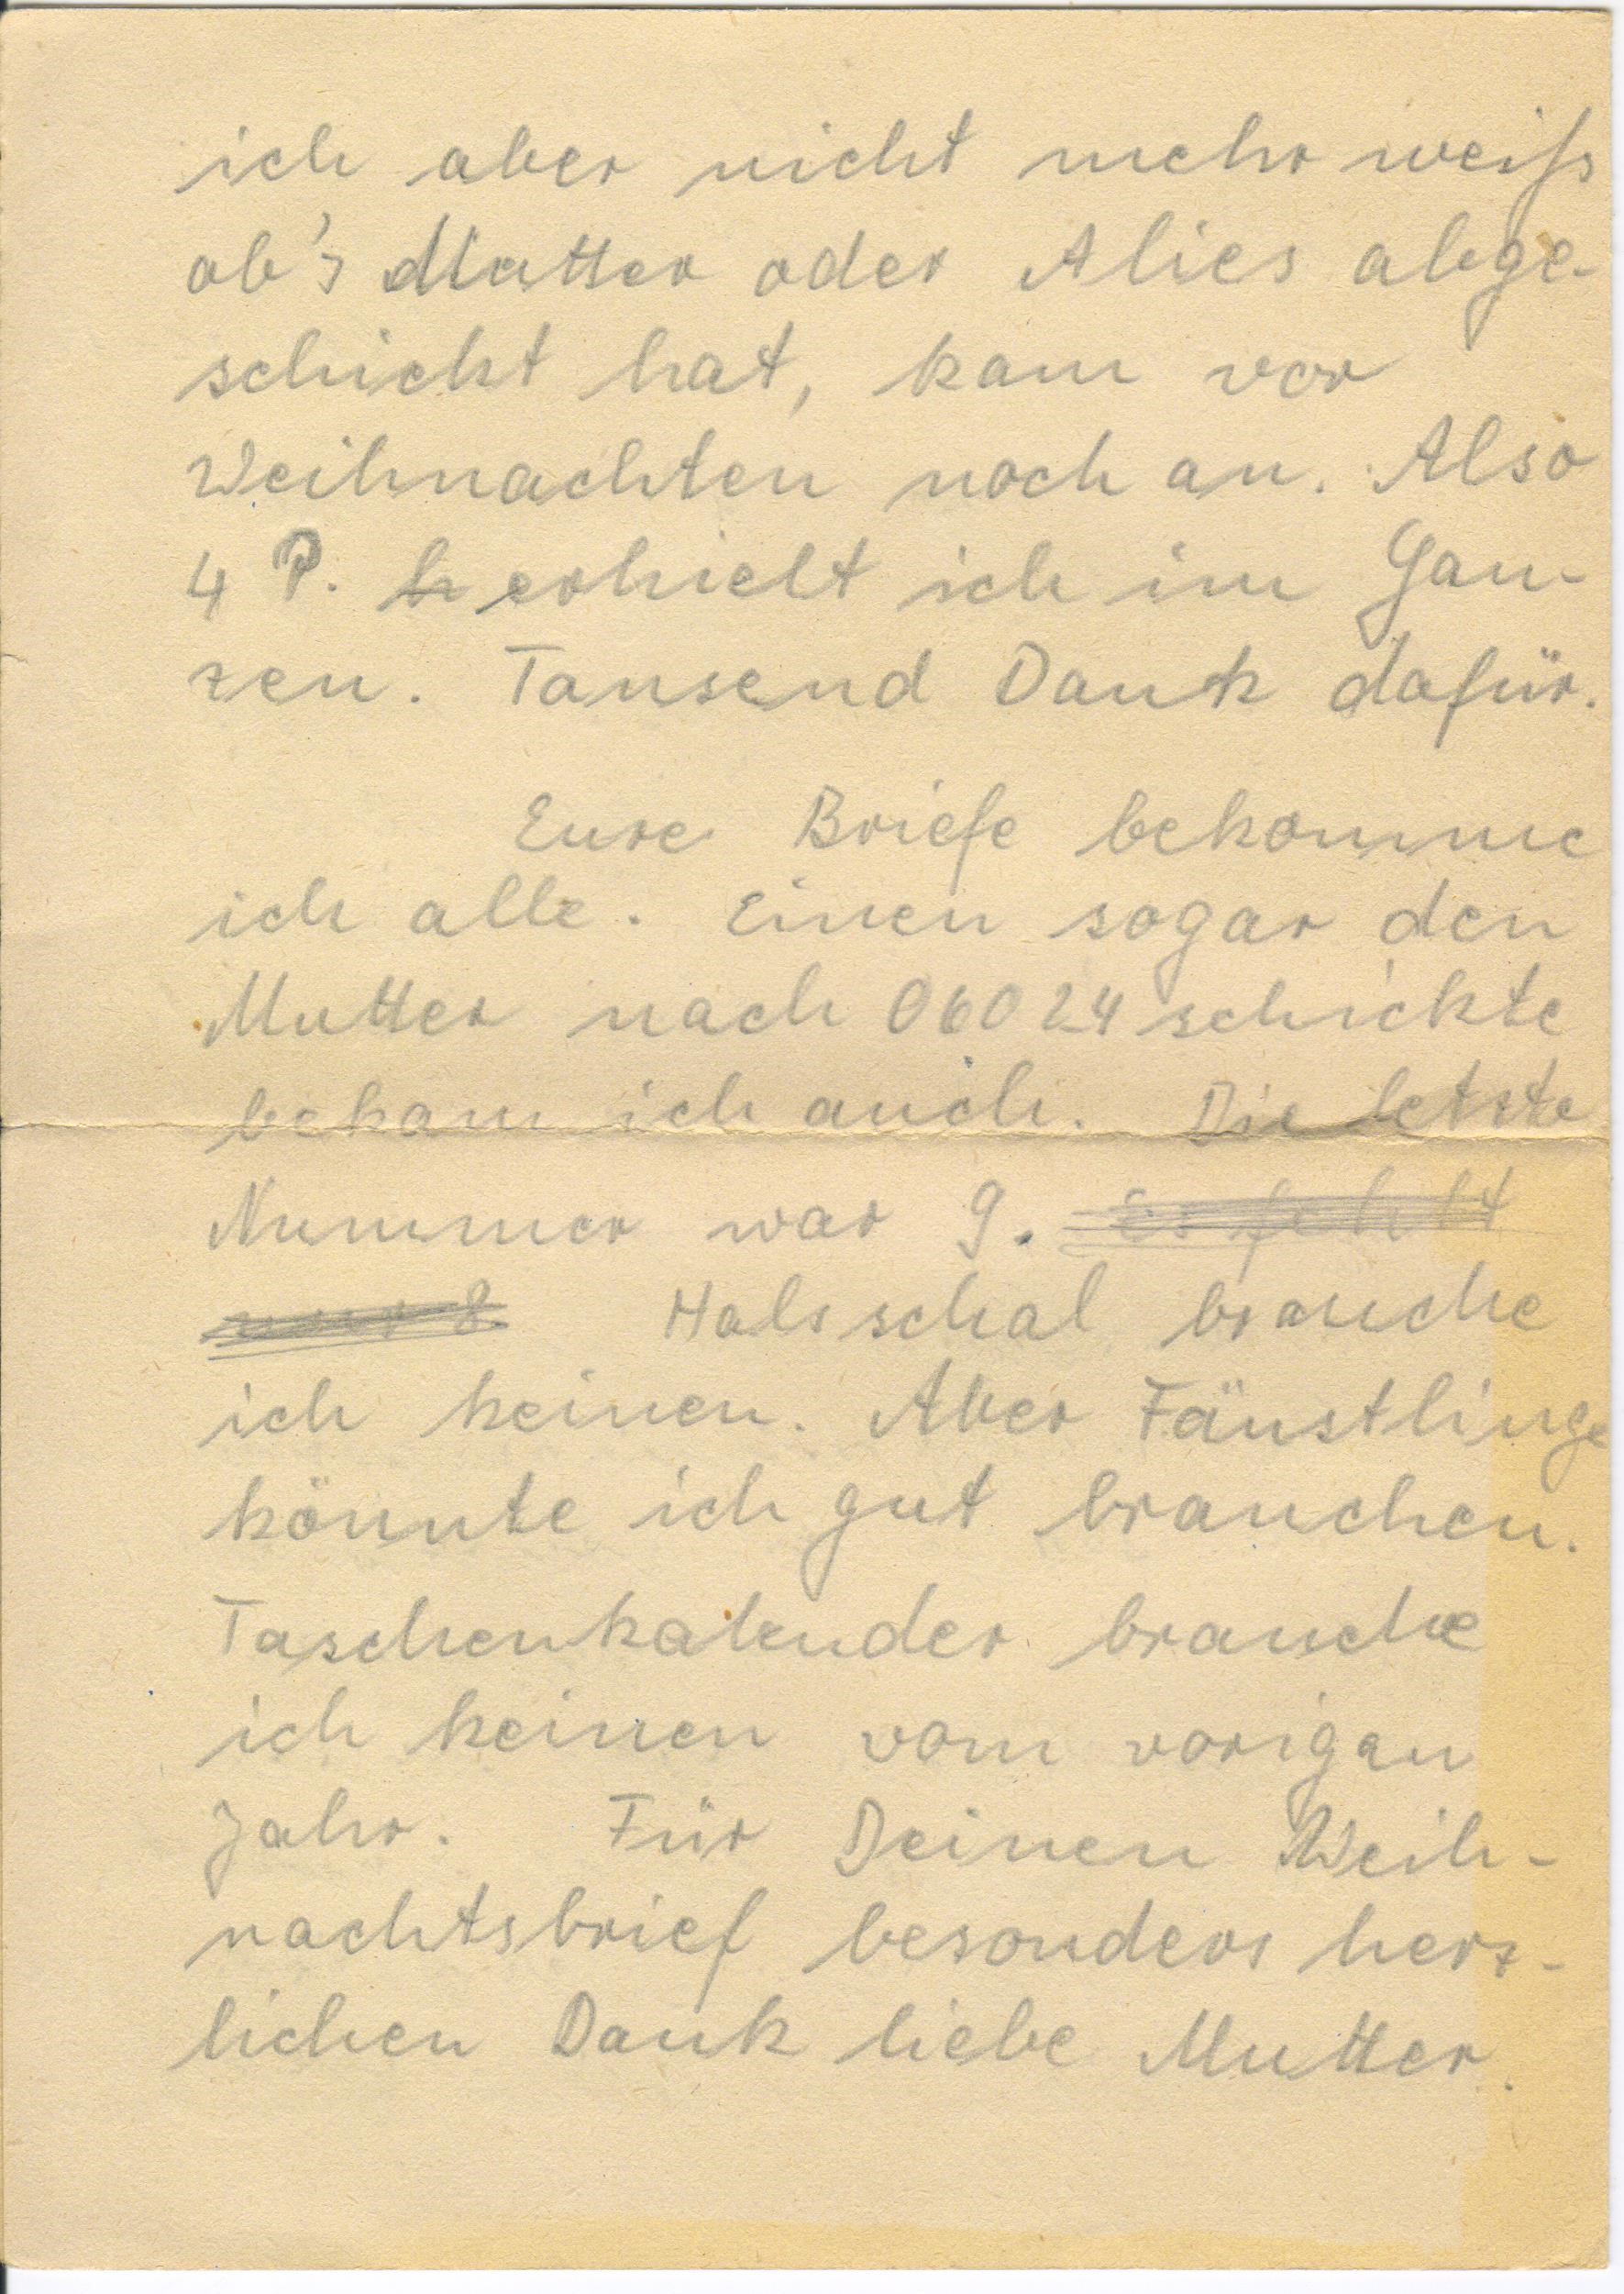 ich aber nicht mehr weiß
ob's Mutter oder Alies abge-
schickt hat, kam vor
Weihnachten noch an. Also
4 P. erhielt ich im Gan-
zen. Tausend Dank dafür.
Eure Briefe bekomme
ich alle. Einen sogar den
Mutter nach 06024 schickte
bekam ich auch. Die letzte
Nummer war 9. Es fehlt
nur 8 Halsschal brauche
ich keinen. Aber Fäustlinge
könnte ich gut brauchen.
Taschenkalender brauche
ich keinen vom vorigen
Jahr. Für Deinen Weih-
nachtsbrief besonders herz-
lichen Dank liebe Mutter.